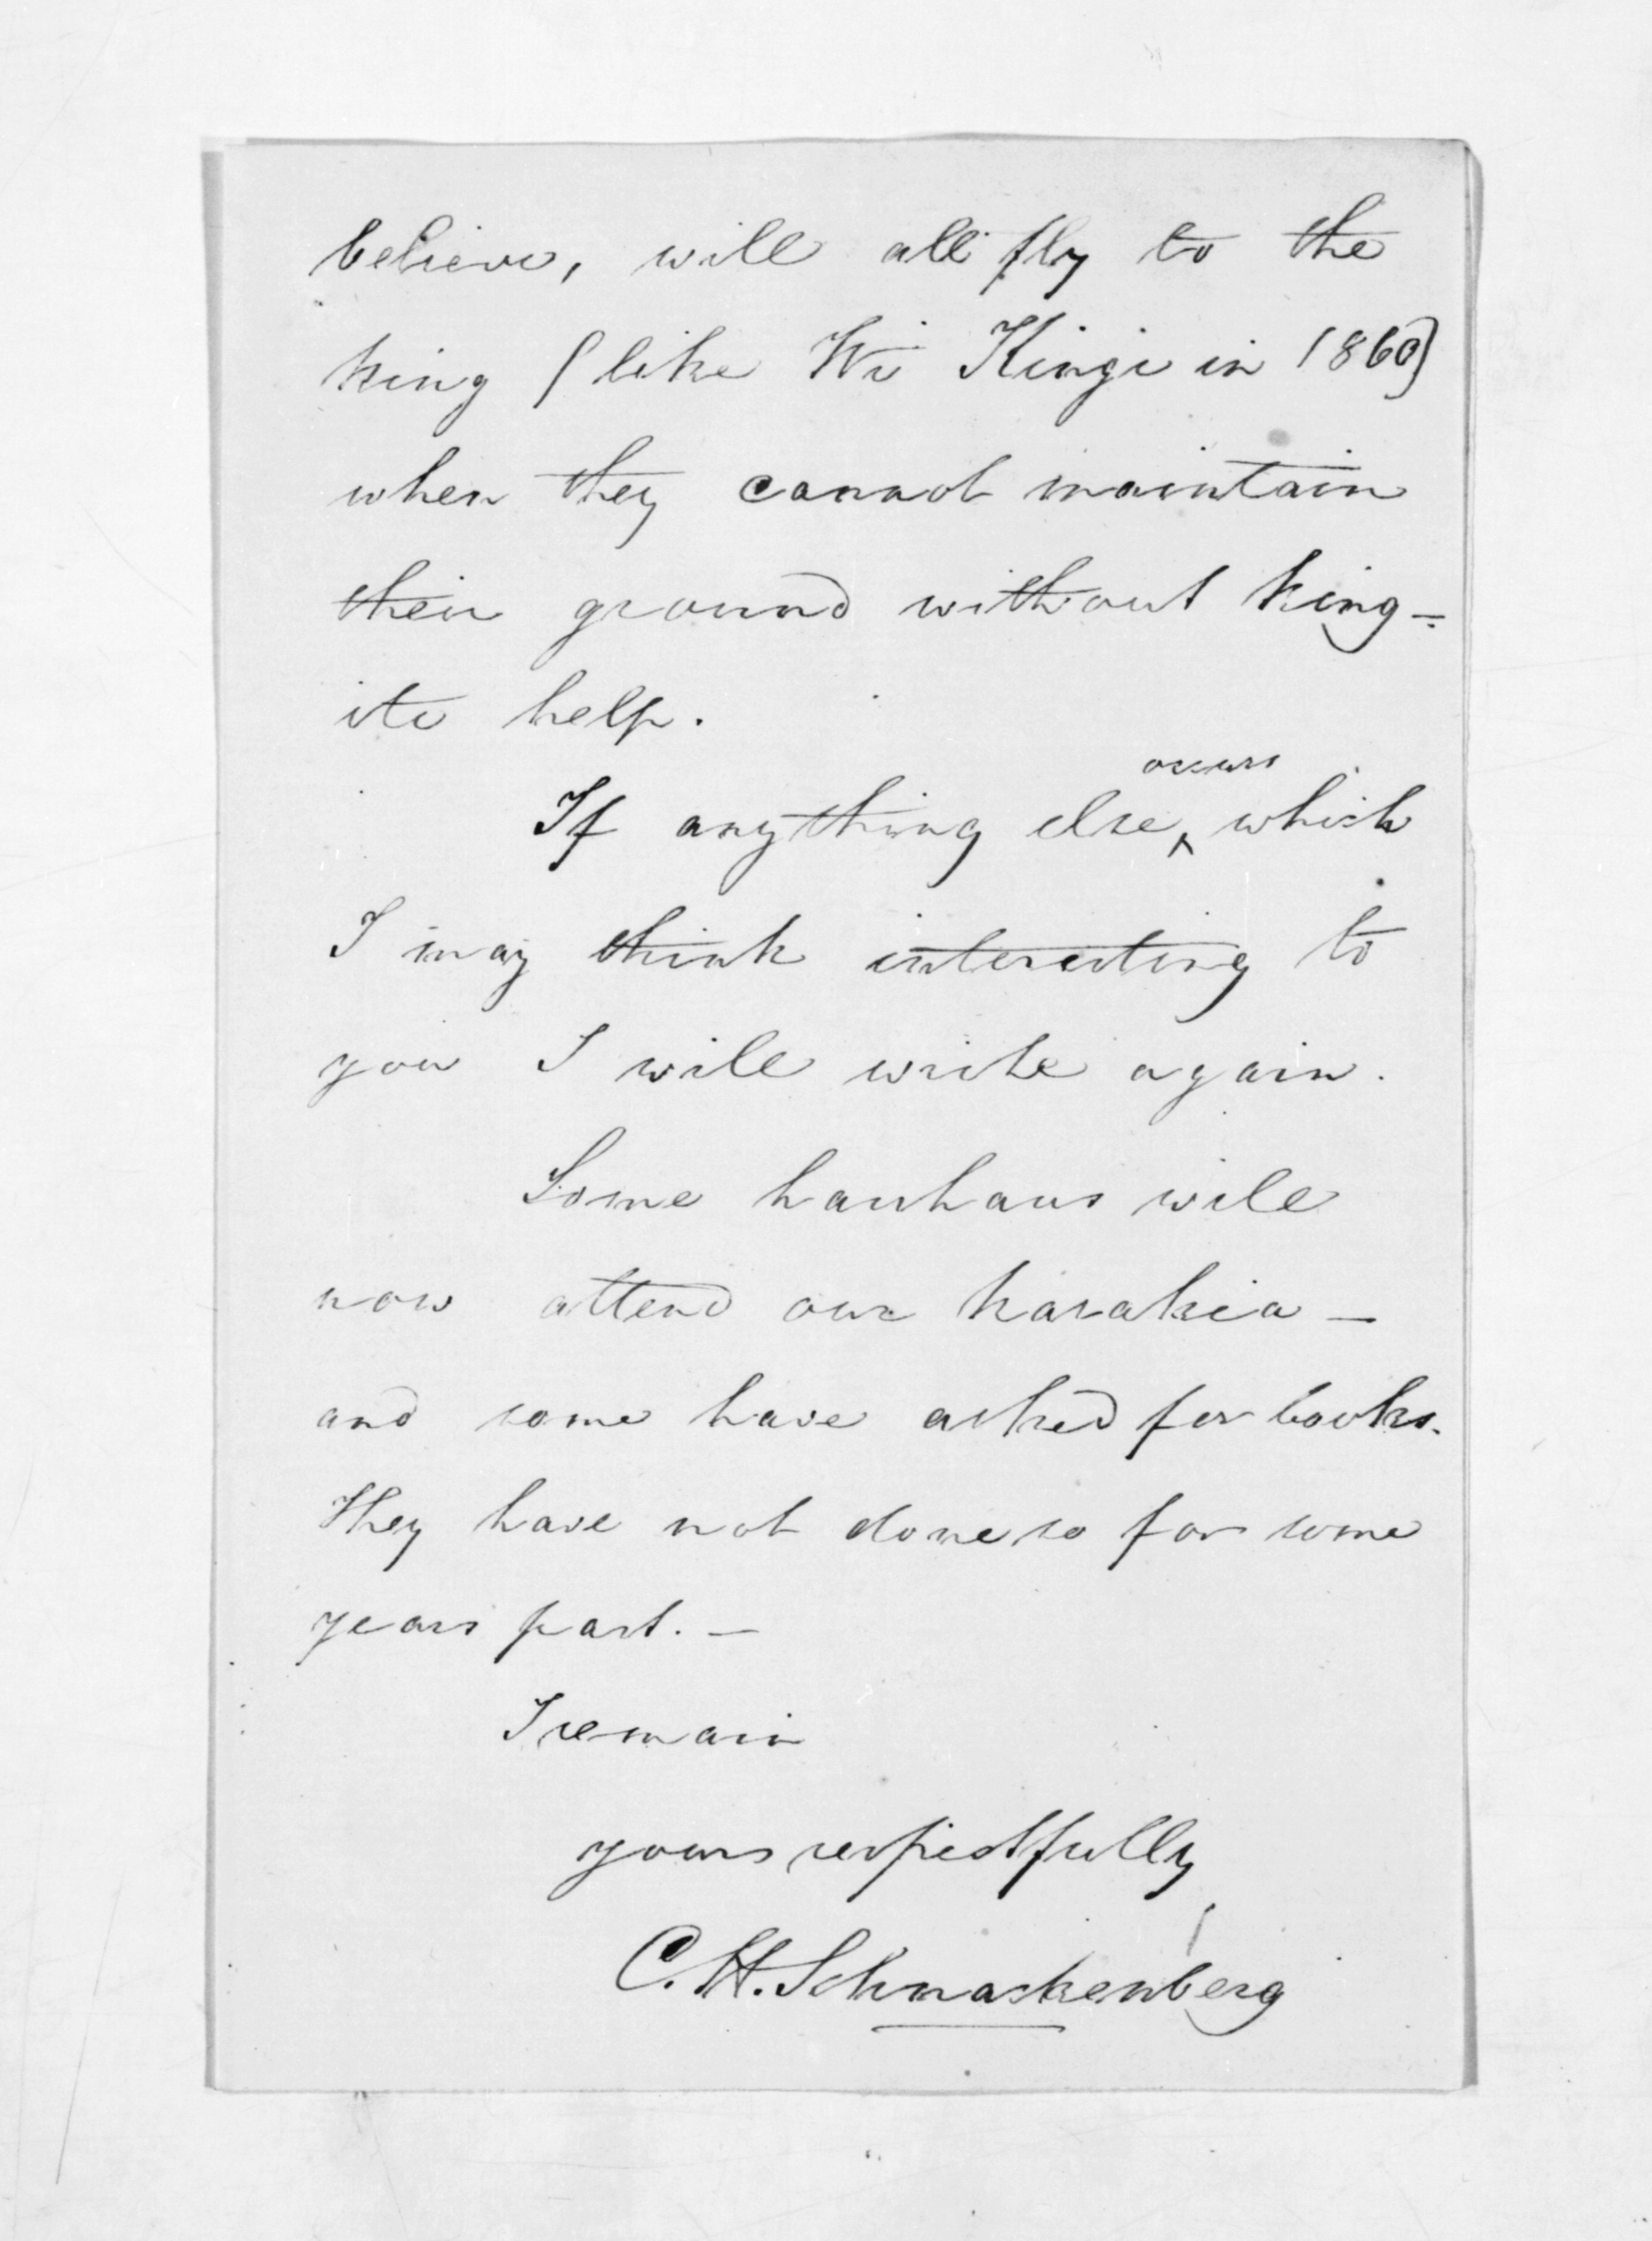 believe, will all fly to the
king (like Wi Kingi in 1860)
when they cannot maintain
their ground without king-
ite help.
occurs
If anything else ‸ which
I may think interesting to
you I will write again.
Some hauhaus will
now attend our karakia —
and some have asked for books.
They have not done so for some
years past. —
I remain
yours respectfully
C. H. Schnackenberg